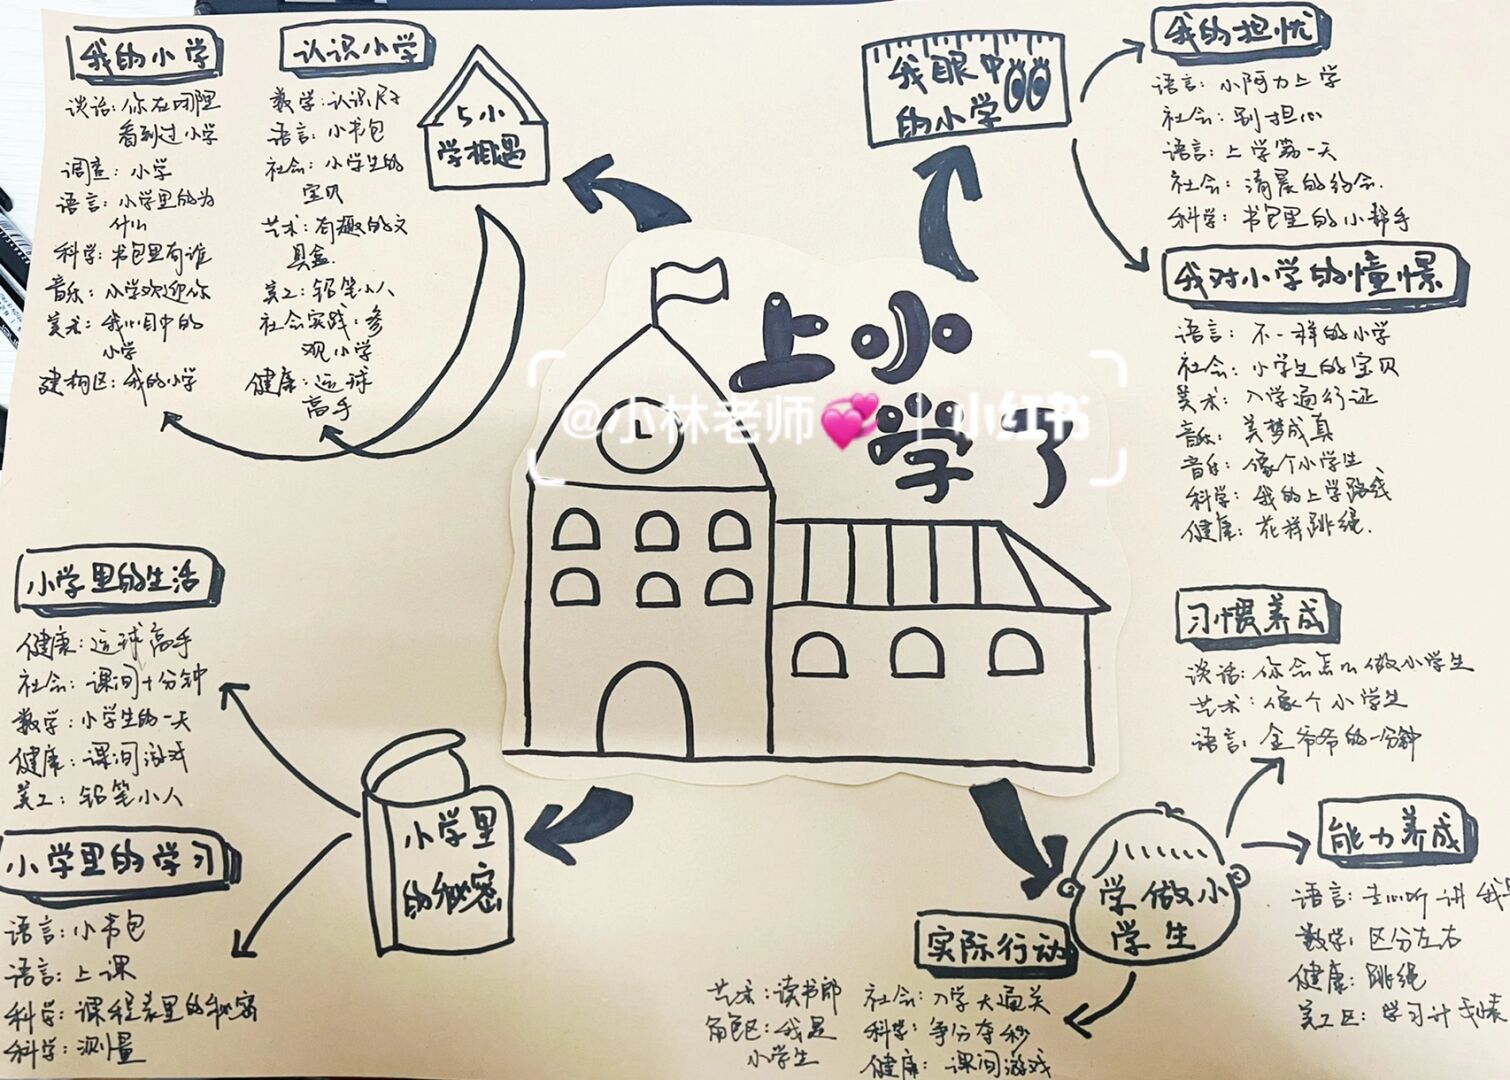 上小
学了
@小林老师 | 小红书
与小
学相遇
我的小学
谈话：你在哪里
看到过小学
调查：小学
语言：小学里的为
什么
科学：书包里有谁
音乐：小学欢迎你
美术：我心目中的
小学
建构区：我的小学
认识小学
数学：认识尺子
语言：小书包
社会：小学生的
宝贝
艺术：有趣的文
具盒
美工：铅笔小人
社会实践：参
观小学
健康：运球
高手
我眼中
的小学
我的担忧
语言：小阿力上学
社会：别担心
语言：上学第一天
社会：清晨的约会
科学：书包里的小帮手
我对小学的憧憬
语言：不一样的小学
社会：小学生的宝贝
美术：入学通行证
音乐：美梦成真
音乐：像个小学生
科学：我的上学路线
健康：花样跳绳
小学里
的秘密
小学里的生活
健康：运球高手
社会：课间十分钟
数学：小学生的一天
健康：课间游戏
美工：铅笔小人
小学里的学习
语言：小书包
语言：上课
科学：课程表里的秘密
科学：测量
学做小
学生
习惯养成
谈话：你会怎么做小学生
艺术：像个小学生
语言：金爷爷的一分钟
能力养成
数学：区分左右
健康：跳绳
实际行动
艺术：读书郎
角色区：我是
小学生
社会：入学大通关
科学：争分夺秒
健康：课间游戏